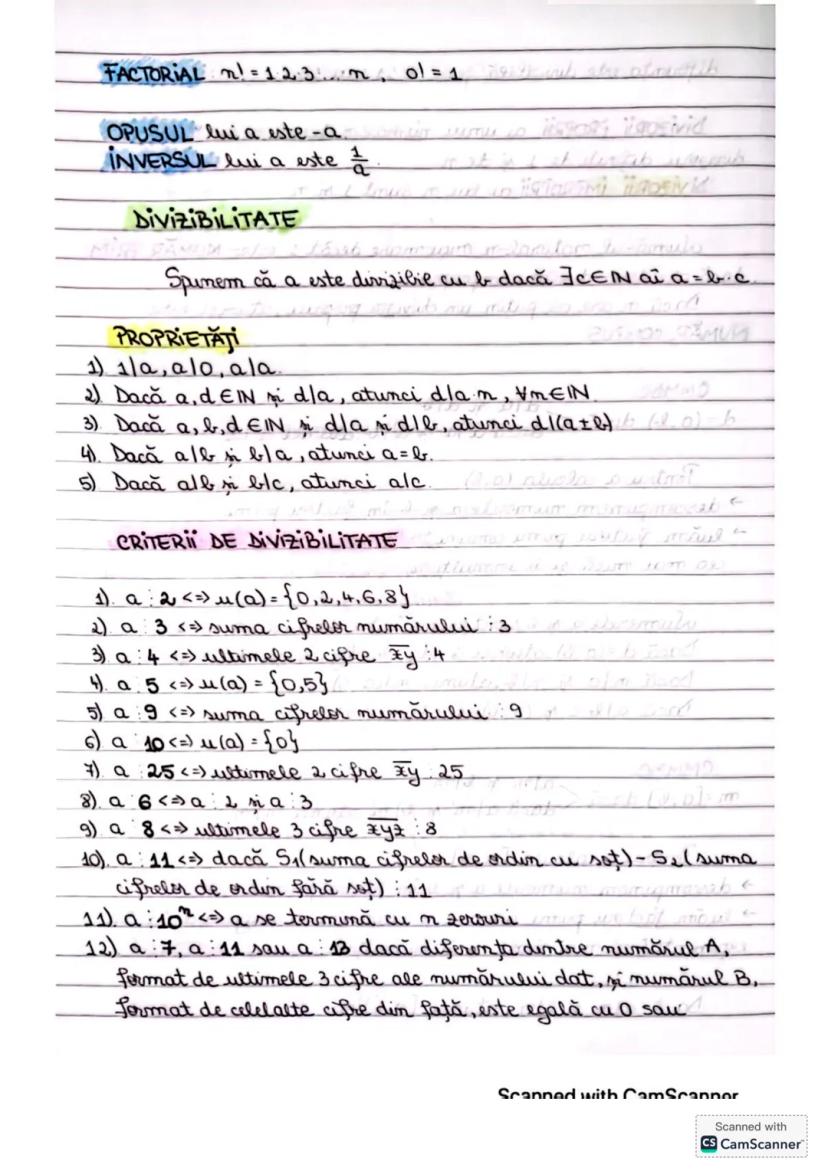 FACTORIAL n! = 1·2·3·...·n, 0! = 1
OPUSUL lui a este -a.
INVERSUL lui a este 1/a.
DIVIZIBILITATE
Spunem că a este divizibil cu b dacă ∃c∈IN aî a = b·c.
PROPRIETĂȚI
1) 1|a, a|0, a|a.
2) Dacă a, d ∈ IN și d|a, atunci d|a·n, ∀n∈IN.
3) Dacă a, b, d ∈ IN și d|a și d|b, atunci d|(a±b)
4). Dacă a|b și b|a, atunci a=b.
5) Dacă a|b și b|c, atunci a|c.
CRITERII DE DIVIZIBILITATE
1). a ⋮ 2 <=> u(a) = {0,2,4,6,8}
2) a ⋮ 3 <=> suma cifrelor numărului ⋮ 3
3) a ⋮ 4 <=> ultimele 2 cifre x̅y̅ ⋮ 4
4). a ⋮ 5 <=> u(a) = {0,5}
5) a ⋮ 9 <=> suma cifrelor numărului ⋮ 9
6) a ⋮ 10 <=> u(a) = {0}
7) a ⋮ 25 <=> ultimele 2 cifre x̅y̅ ⋮ 25
8). a ⋮ 6 <=> a ⋮ 2 și a ⋮ 3
9) a ⋮ 8 <=> ultimele 3 cifre x̅y̅z̅ ⋮ 8
10). a ⋮ 11 <=> dacă S₁(suma cifrelor de ordin cu soț) - S₂(suma
cifrelor de ordin fără soț) ⋮ 11
11). a ⋮ 10ⁿ <=> a se termină cu n zerouri
12) a ⋮ 7, a ⋮ 11 sau a ⋮ 13 dacă diferența dintre numărul A,
format de ultimele 3 cifre ale numărului dat, și numărul B,
format de celelalte cifre din față, este egală cu 0 sau
Scanned with CamScanner
Scanned with
CS CamScanner